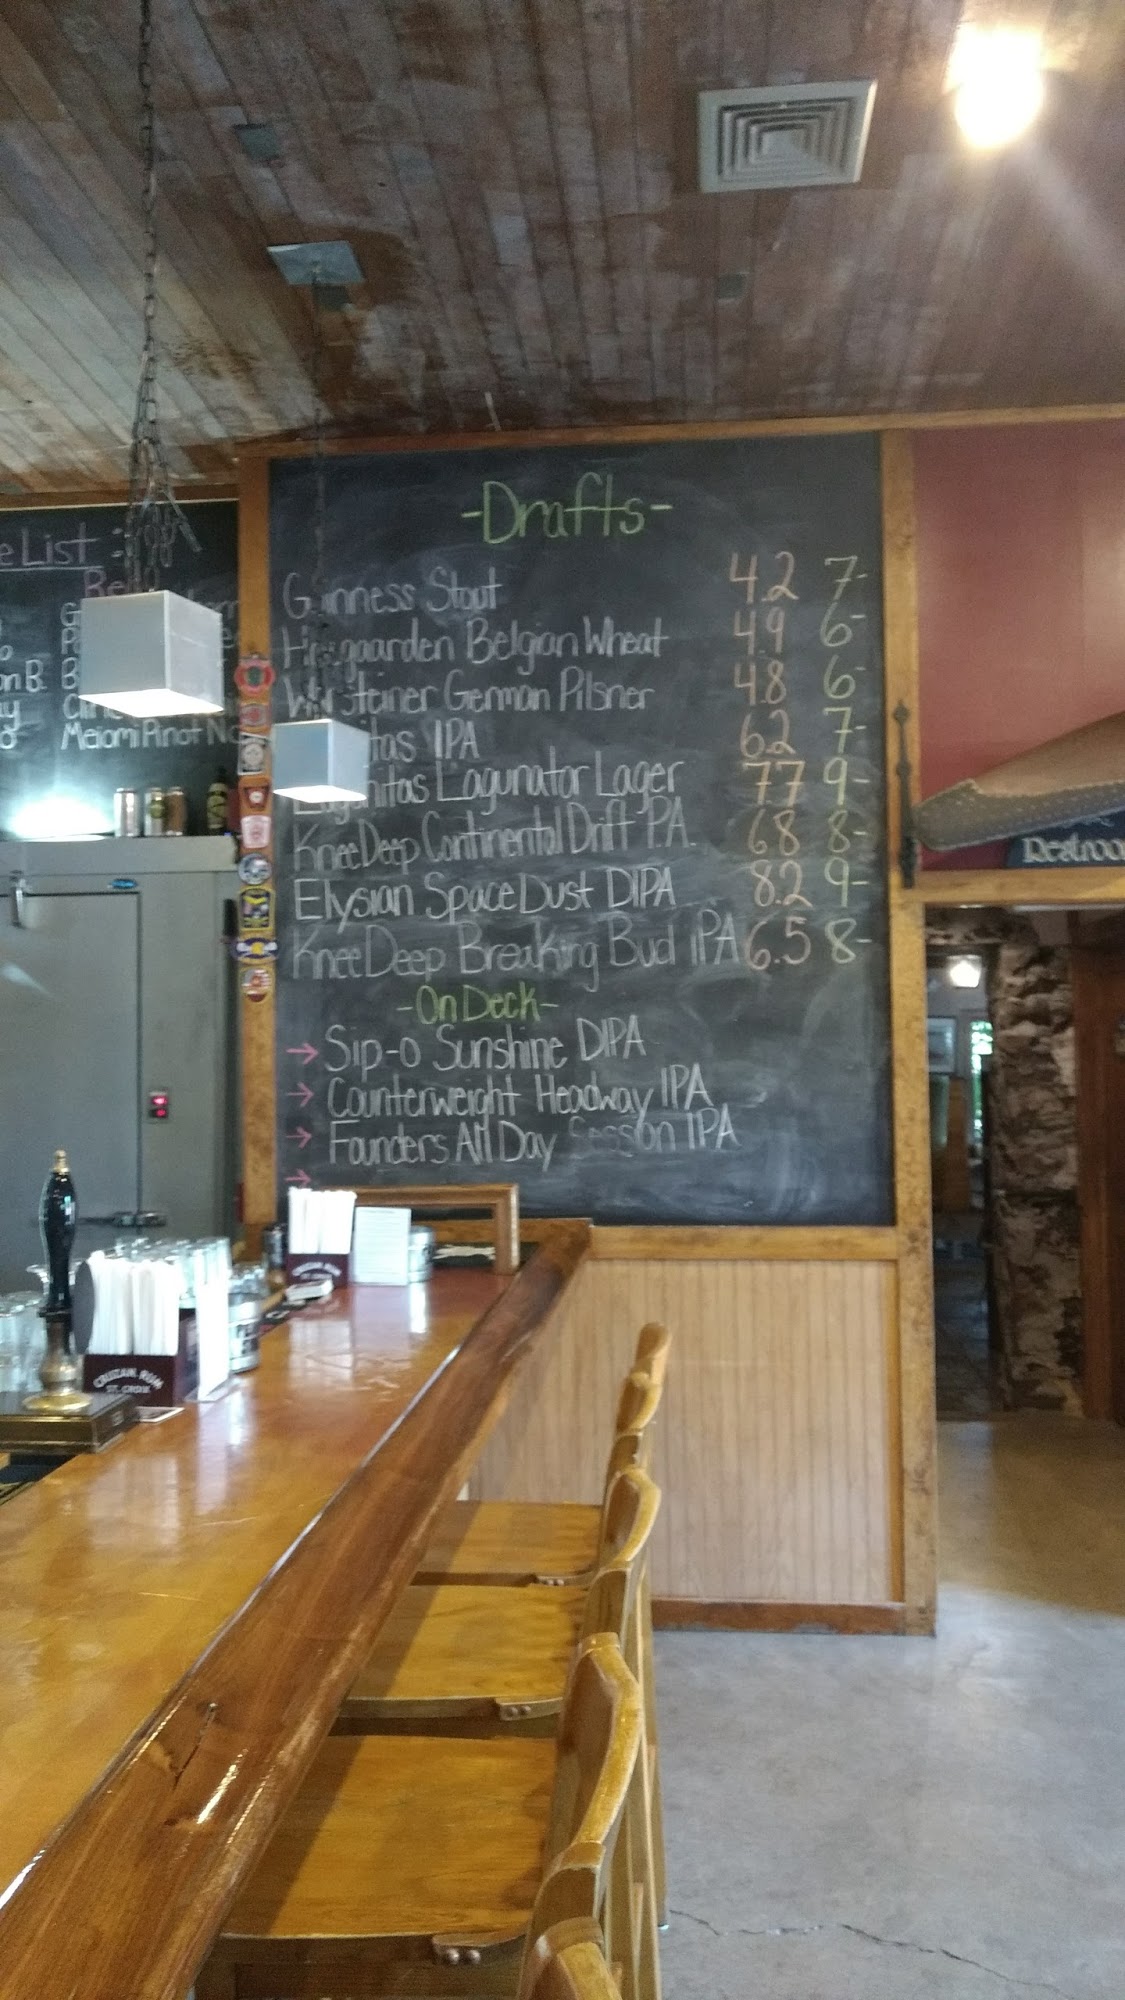 -Drafts-
Guinness Stout 4.2 7-
Hoegaarden Belgian Wheat 4.9 6-
Warsteiner German Pilsner 4.8 6-
IPA 6.2 7-
Lagunitas Lagunator Lager 7.7 9-
KneeDeep Continental Drift P.A. 6.8 8-
Elysian SpaceDust DIPA 8.2 9-
KneeDeep Breaking Bud IPA 6.5 8-
-On Deck-
→ Sip-o Sunshine DIPA
→ Counterweight Headway IPA
→ Founders All Day Session IPA
→
List
Meiomi Pinot
Restroo
CRUZAN RUM
ST. CROIX
CRUZAN RUM